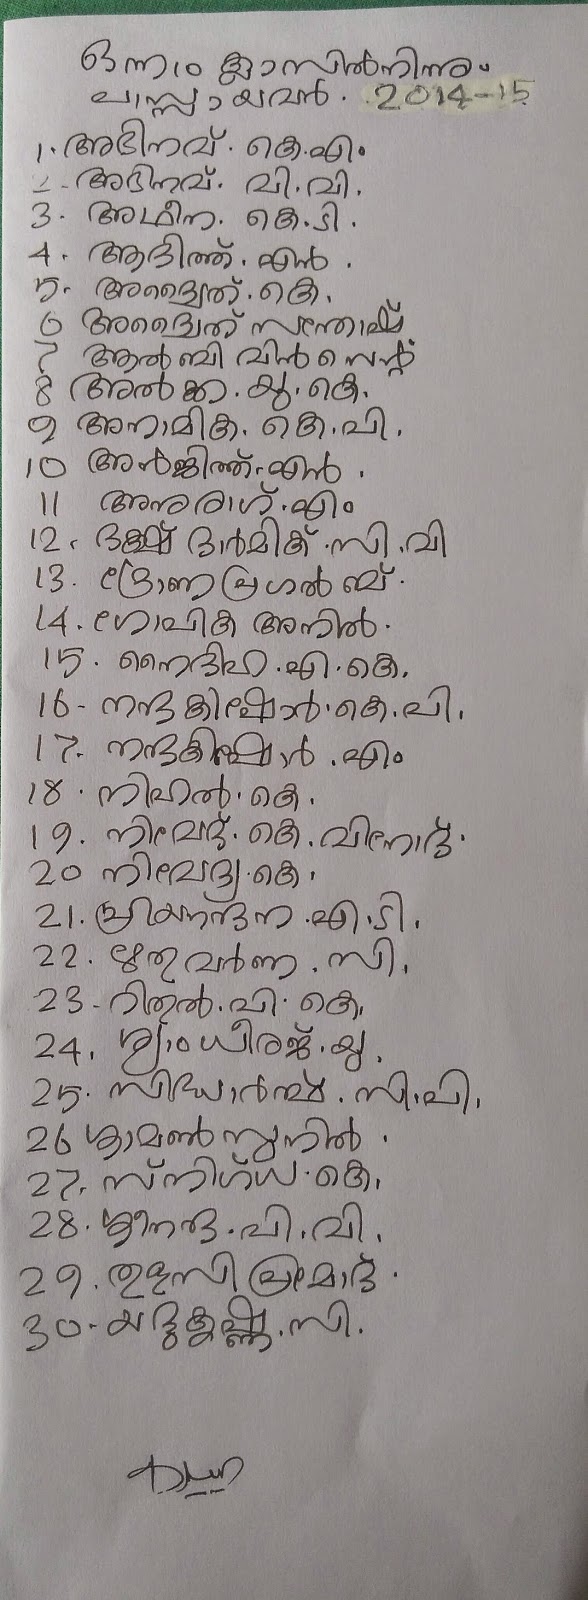 ഒന്നാം ക്ലാസിൽനിന്നും
പാസ്സായവർ. 2014-15
1. അഭിനവ്. കെ.എം
2. അഭിനവ്. വി.വി.
3. അഥീന. കെ.ടി.
4. ആദിത്ത്. എൻ.
5. അദ്വൈത്. കെ.
6 അദ്വൈത് സന്തോഷ്
7 ആൽബി വിൻസെന്റ്
8 അൽക്ക. യു. കെ.
9 അനാമിക. കെ.പി.
10 അൻജിത്ത്. എൻ.
11 അനുരാഗ്. എം
12. ദക്ഷ് ദാർമിക്. സി.വി
13. ദ്രോണ പ്രഗൽബ്.
14. ഗോപിക അനിൽ.
15. നൈദിഹ. എ. കെ.
16- നന്ദകിഷോർ. കെ.പി.
17. നന്ദകിഷോർ. എം
18. നിഹൽ. കെ.
19. നിവേദ്. കെ. വിനോദ്.
20 നിവേദ്യ. കെ.
21. പ്രിയനന്ദന. എ. ടി.
22. ഋതുവർണ. സി.
23- റിതുൽ. പി. കെ.
24. ശ്യാംധീരജ്. യു.
25. സിദ്ധാർത്ഥ്. സി. പി.
26 ശ്രാമൺ സുനിൽ.
27. സ്നിഗ്ധ. കെ.
28. ശ്രീനന്ദ. പി. വി.
29. തുളസി പ്രമോദ്.
30- യദുകൃഷ്ണ. സി.